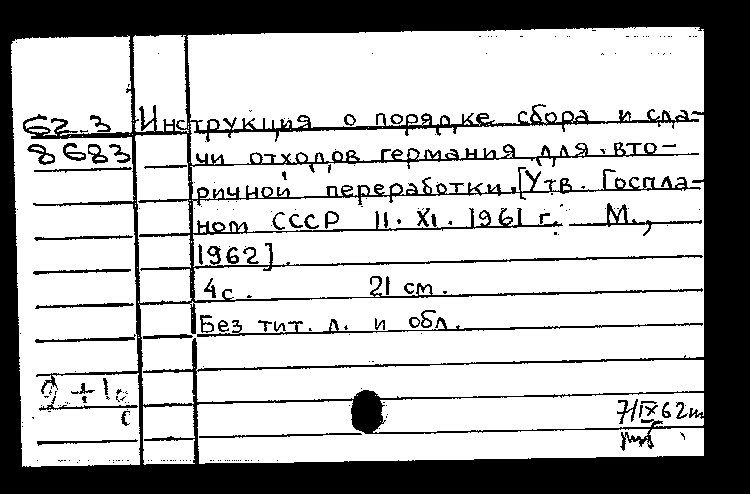 62 3 Инструкция о порядке сбора и сда-
8683 чи отходов германия для вто-
ричной переработки. [Утв. Госпла-
ном СССР 11. XI. 1961 г. М.,
1962].
4 с. 21 см.
Без тит. л. и обл.
7/IX 62